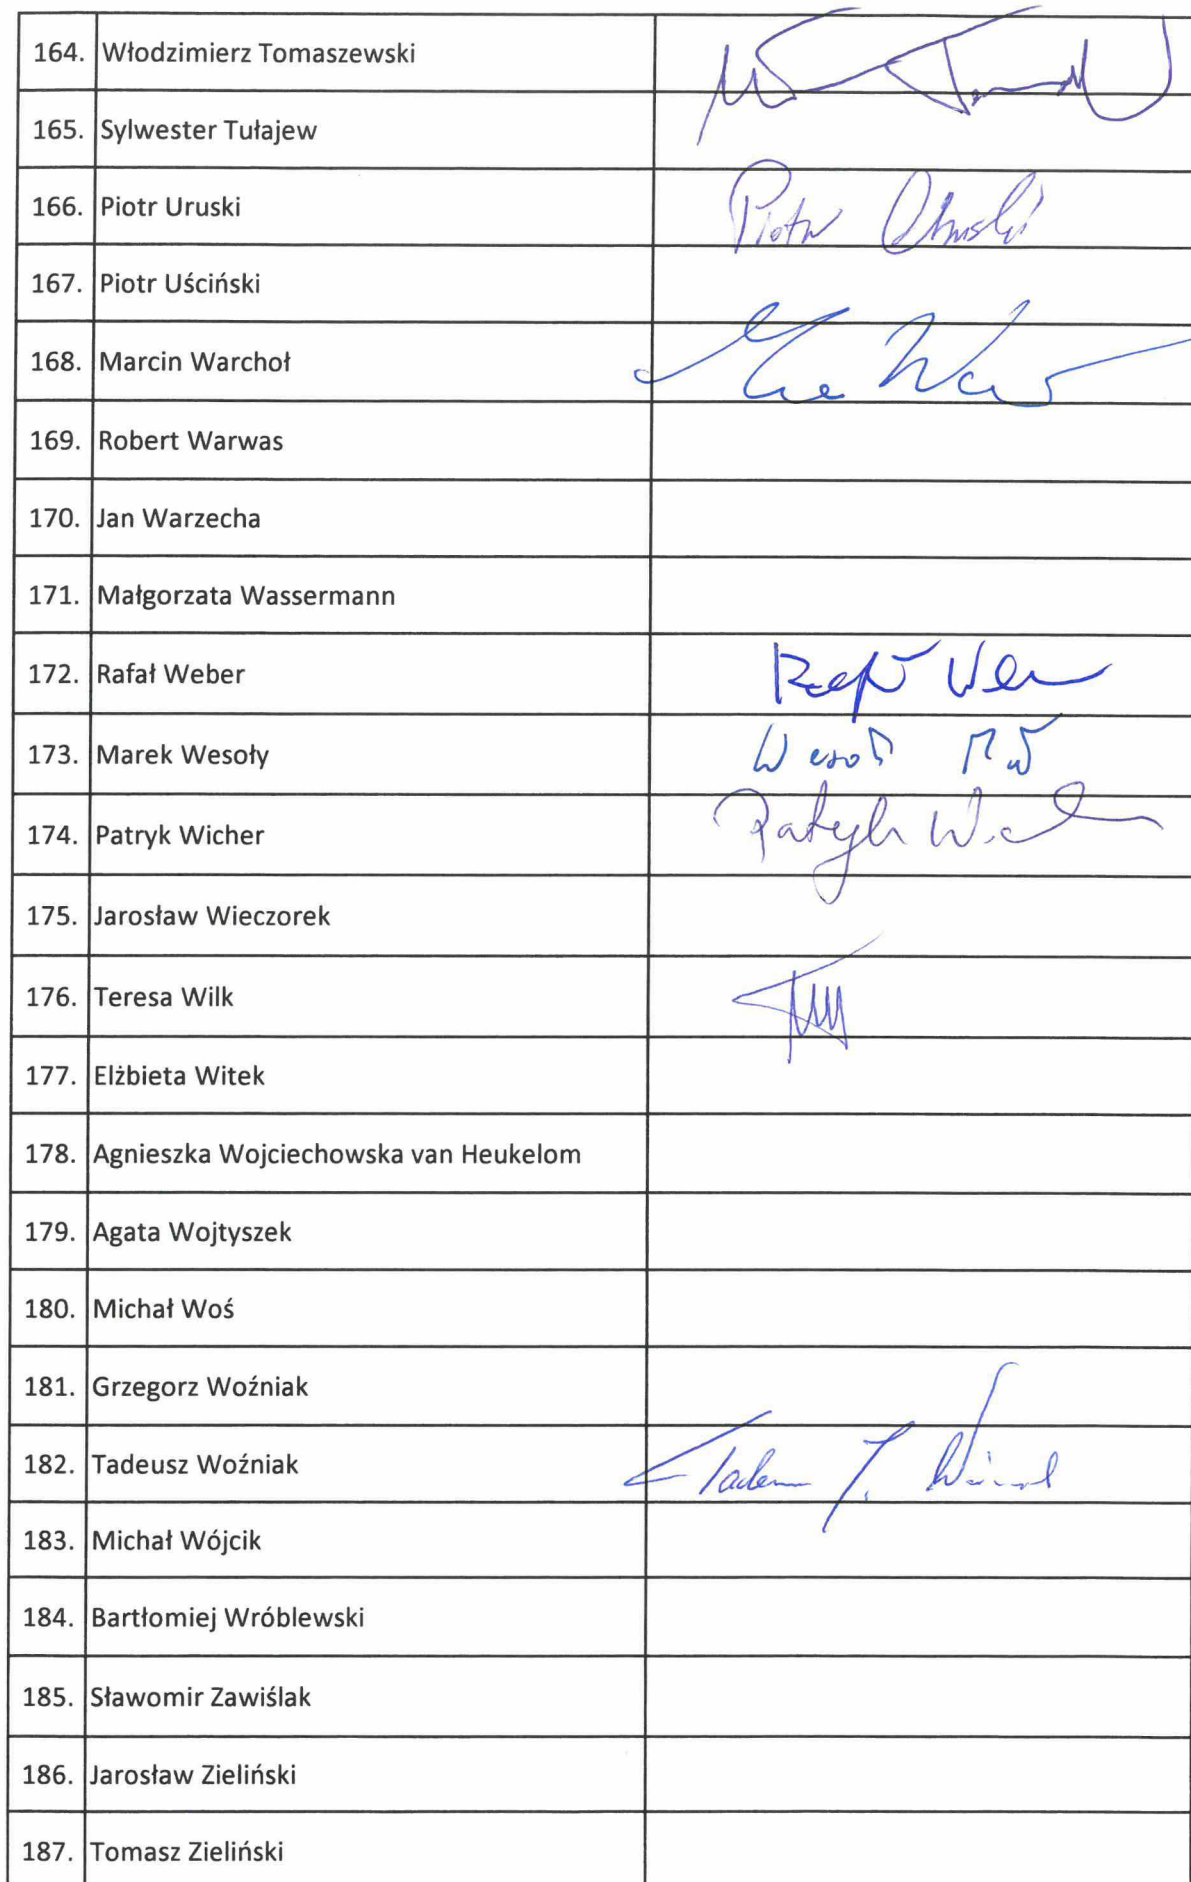 164. Włodzimierz Tomaszewski
165. Sylwester Tułajew
166. Piotr Uruski Piotr Uruski
167. Piotr Uściński
168. Marcin Warchoł
169. Robert Warwas
170. Jan Warzecha
171. Małgorzata Wassermann
172. Rafał Weber
173. Marek Wesoły
174. Patryk Wicher Patryk
175. Jarosław Wieczorek
176. Teresa Wilk
177. Elżbieta Witek
178. Agnieszka Wojciechowska van Heukelom
179. Agata Wojtyszek
180. Michał Woś
181. Grzegorz Woźniak
182. Tadeusz Woźniak
183. Michał Wójcik
184. Bartłomiej Wróblewski
185. Sławomir Zawiślak
186. Jarosław Zieliński
187. Tomasz Zieliński